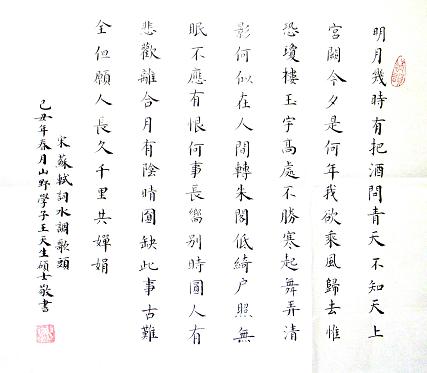 明月幾時有把酒問青天不知天上
宮闕今夕是何年我欲乘風歸去惟
恐瓊樓玉宇高處不勝寒起舞弄清
影何似在人間轉朱閣低綺户照無
眠不應有恨何事長嚮別時圓人有
悲歡離合月有陰晴圓缺此事古難
全但願人長久千里共嬋娟
宋蘇軾詞水調歌頭
己丑年春月山野學子王天生碩士敬書